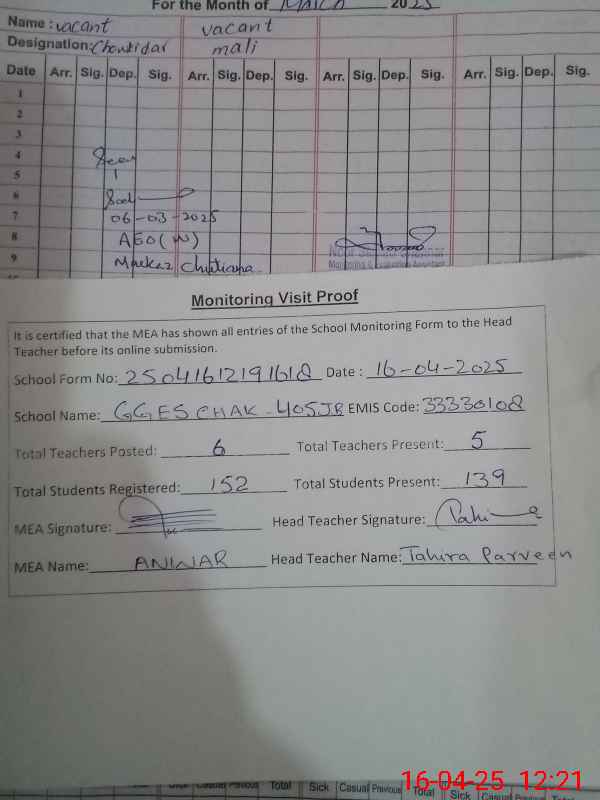 For the Month of March 2025
Name : vacant vacant
Designation: Chowkidar mali
Date Arr. Sig. Dep. Sig. Arr. Sig. Dep. Sig. Arr. Sig. Dep. Sig. Arr. Sig. Dep. Sig.
1
2
3
4
5
6
7 06-03-2025
8 AEO (W)
9 Markaz
Monitoring Visit Proof
It is certified that the MEA has shown all entries of the School Monitoring Form to the Head
Teacher before its online submission.
School Form No: 25041612191618 Date : 16-04-2025
School Name: GGES CHAK-405JB EMIS Code: 33330108
Total Teachers Posted: 6 Total Teachers Present: 5
Total Students Registered: 152 Total Students Present: 139
MEA Signature: Head Teacher Signature:
MEA Name: ANWAR Head Teacher Name: Tahira Parveen
Sick Casual Previous Total Sick Casual Previous Total Sick Casual Previous Total
16-04-25 12:21